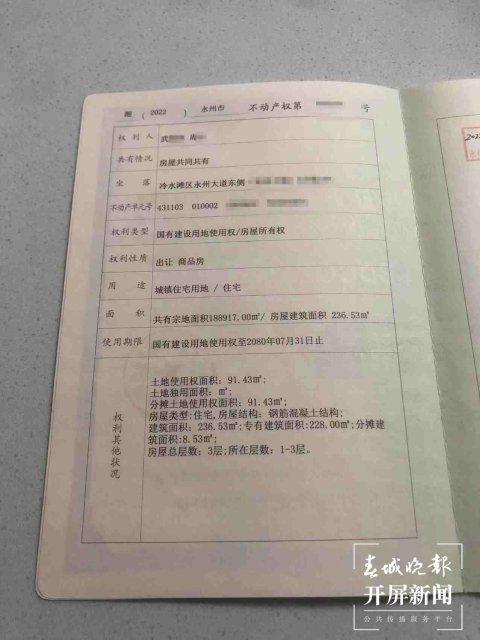 湘 ( 2022 ) 永州市 不动产权第 号
权利人 武 周
共有情况 房屋共同共有
坐落 冷水滩区永州大道东侧
不动产单元号 431103 010002
权利类型 国有建设用地使用权/房屋所有权
权利性质 出让 商品房
用途 城镇住宅用地 / 住宅
面积 共有宗地面积188917.00㎡/ 房屋建筑面积 236.53㎡
使用期限 国有建设用地使用权至2080年07月31日止
权利其他状况
土地使用权面积: 91.43㎡;
土地独用面积: ㎡;
分摊土地使用权面积: 91.43㎡;
房屋类型:住宅,房屋结构: 钢筋混凝土结构;
建筑面积: 236.53㎡;专有建筑面积:228.00㎡;分摊建
筑面积:8.53㎡;
房屋总层数: 3层;所在层数: 1-3层。
春城晚报
开屏新闻
公共传播服务平台